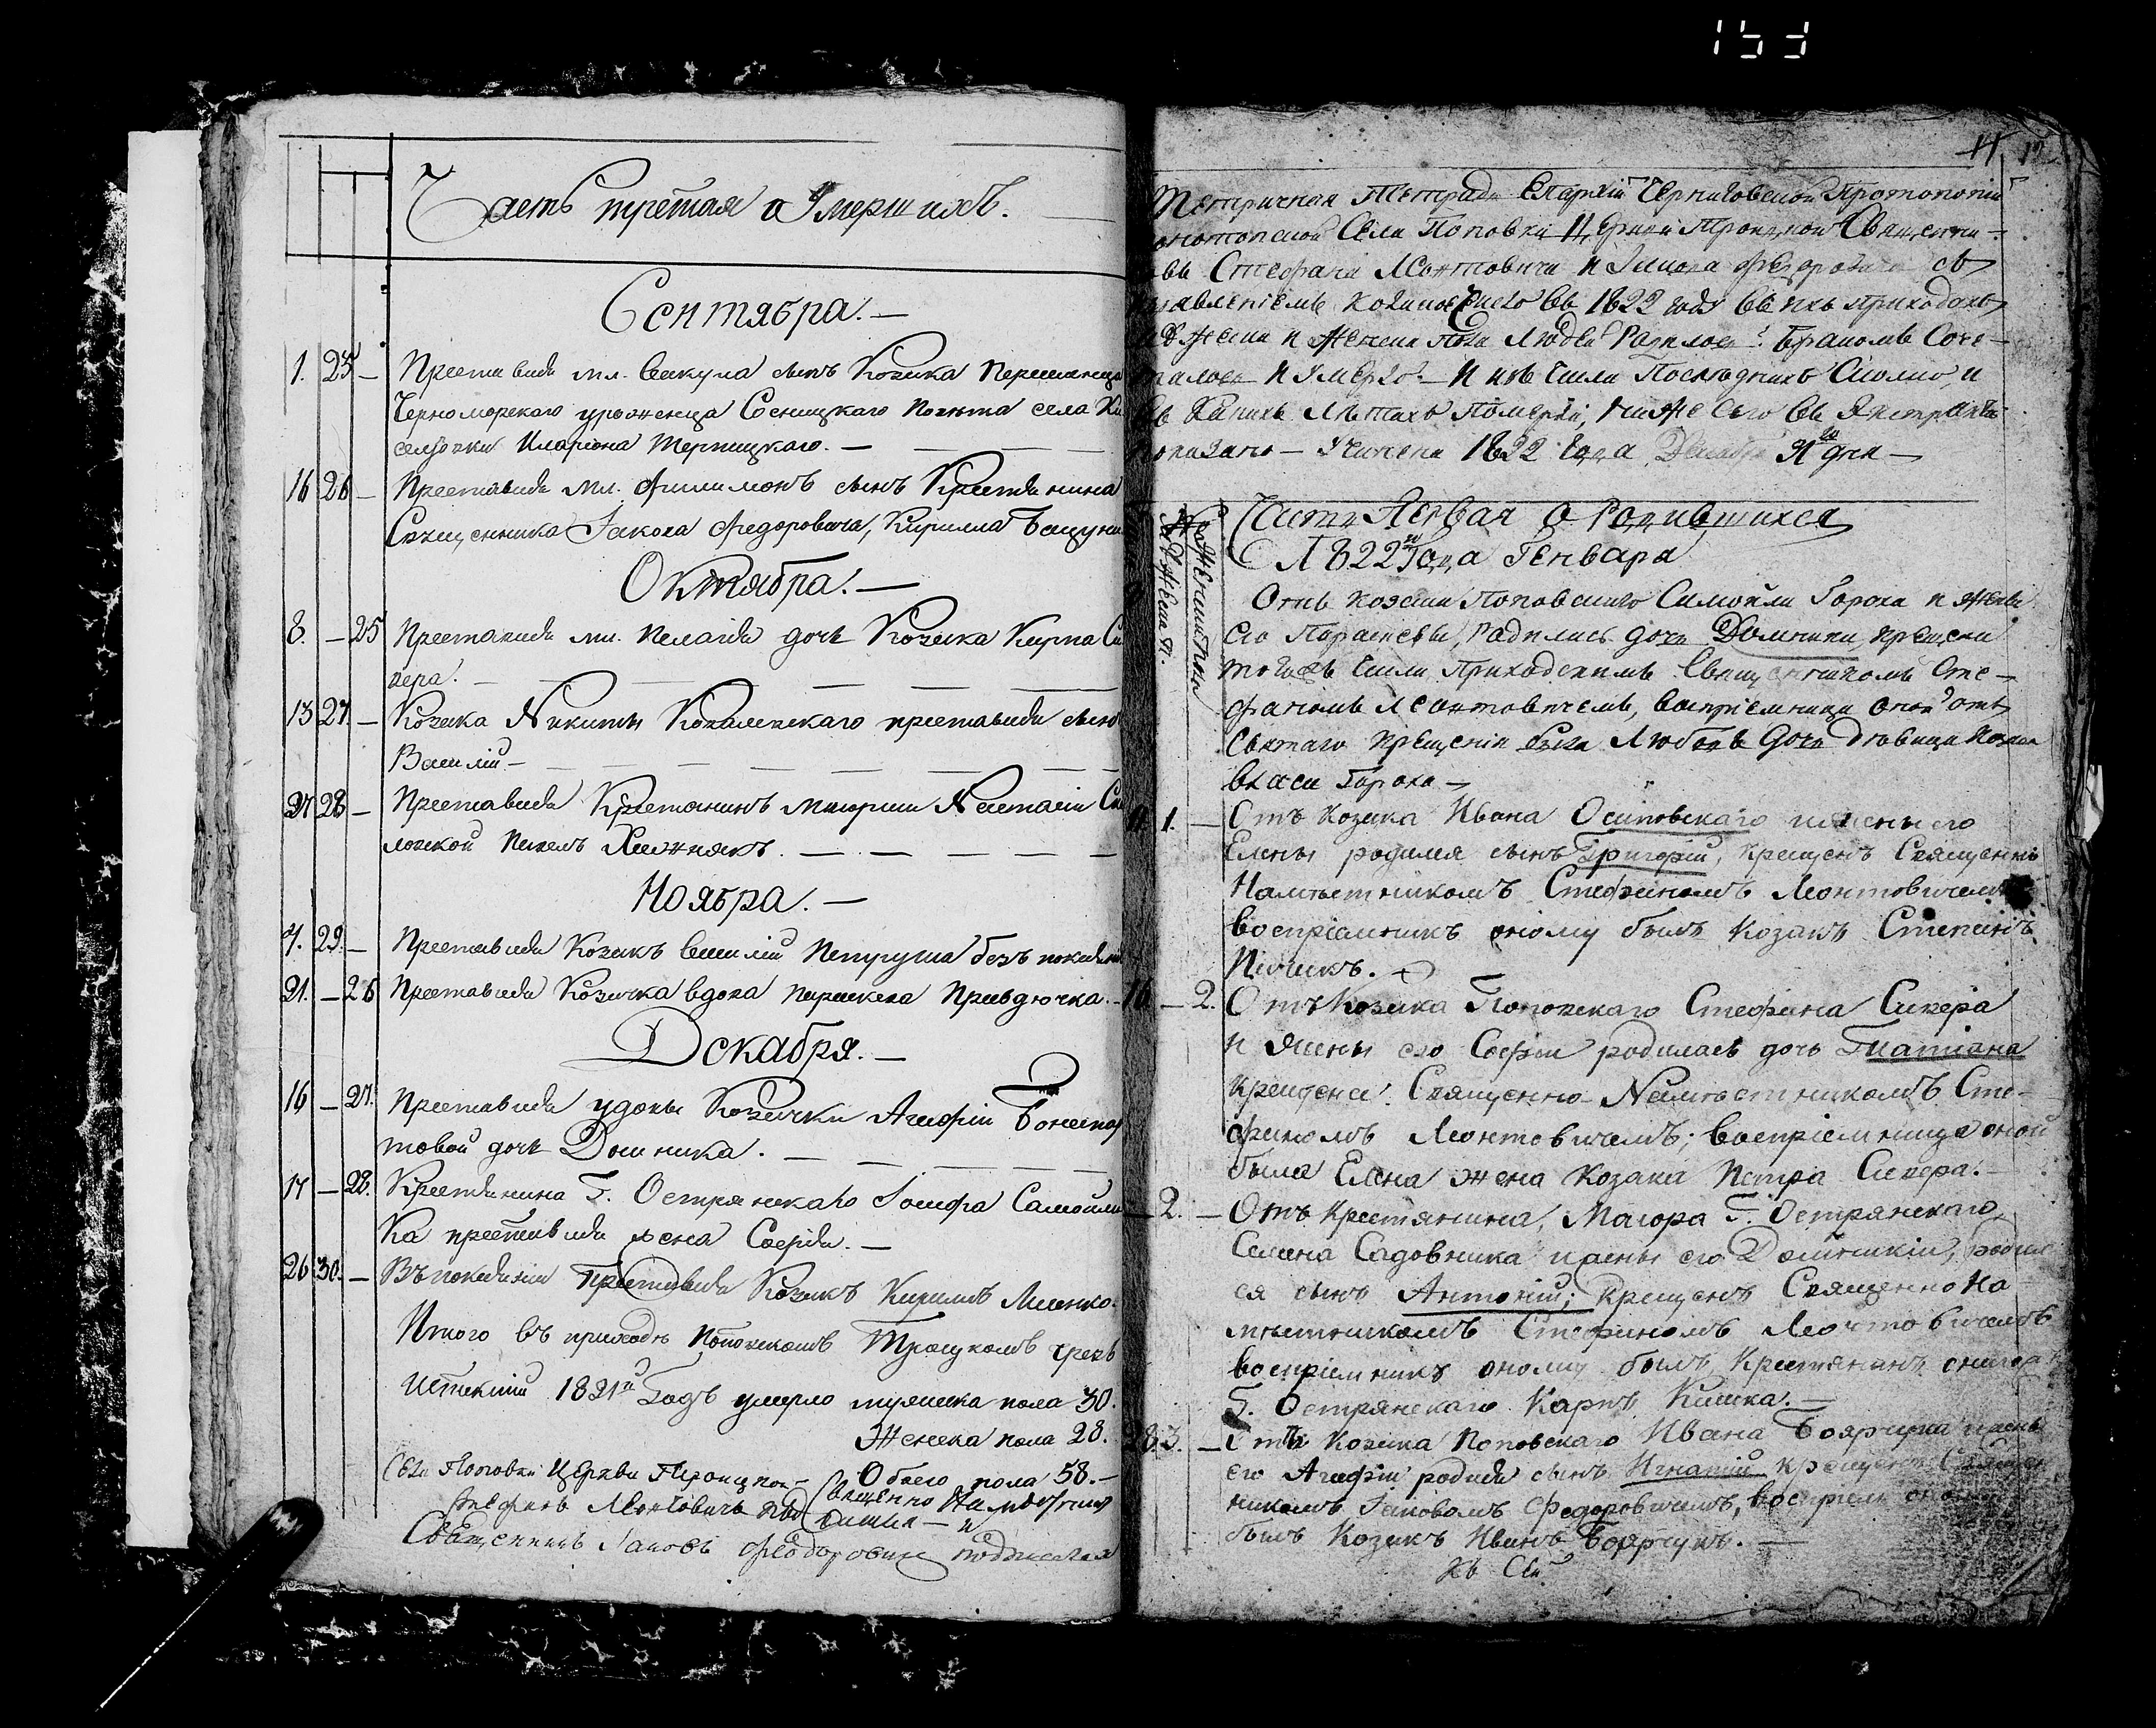 153
Часть третая о Умершихъ.
Сентября.
1. 25 — Преставися мл. Вакула сынъ Козака
Черноморского уроженца Сосницкаго Повѣта села
Илариона
16 26 — Преставися мл. Филимонъ сынъ Крестянина
Священника Іакова Федоровича, Кирилла
Октября.
8. — 25 Преставися мл. Пелагія дочь Козака Карпа Си
кера.
13 27 — Козака Никиты Ковалевскаго преставися сынъ
Василій —
27 28 — Преставися Крестянинъ Маіорши Настасіи
Павелъ Хижнякъ.
Ноября.
7. 29. — Преставися Козакъ Василій Петруша безъ
21. — 26 Преставися Козачка вдова Параскева Правдючка.
Декабря.
16 — 27. Преставися удовы Козачки Агафіи
товой дочь Домника.
17 — 28. Крестянина Г. Острянскаго Іосифа Самойлен
ка преставися жена Софія.
26 30. — Въ покаяніи Преставися Козакъ Кирилъ
Итого въ приходѣ Поповскомъ Троицкомъ чрезъ
Истекшій 1821й Годъ умерло мужеска пола 30.
Женска пола 28.
Обоего пола 58. —
Села Поповки Церкви Троицкой Священно Намѣстникъ
Стефанъ Леонтовичъ
Священникъ Іаковъ Федоровичъ подписался
11 12
Метричная Тетрадь Епархіи Черниговской Протопопіи
онотопской Села Поповки Церкви Троицкой Священни-
овъ Стефана Леонтовича и Іакова Федоровича съ
явленіемъ колико въ 1822 годѣ въ ихъ приходахъ
Мужеска и Женска Пола Людей Родилося Бракомъ Соче-
талося и Умерло — И изъ числа Послѣднихъ Сколко, и
въ Какихъ Лѣтахъ Померли, ниже сего въ Экстрактѣ
оказано — Учинена 1822 Года Декабря 31 дня —
Мужеска п.
Женска пола
Часть Первая о Родившихся
1822го Года Генваря
Отъ козака Поповскаго Самойла Гороха и жены
Его Параскевы, Родилась дочь Домника, крещена
тогожъ числа Приходскимъ Священникомъ Сте-
фаномъ Леонтовичемъ, воспріемница оной отъ
Святаго Крещенія была Любовь дочь Дѣвица Козака
Власа Гороха —
1. — Отъ Козака Ивана Осиповскаго и жены его
Елены родился сынъ Григорій, крещенъ Священно
Намѣстникомъ Стефаномъ Леонтовичемъ
воспріемникъ оному былъ Козакъ Степанъ

16 — 2. Отъ Козака Поповскаго Стефана Сикера
и жены его Софіи родилась дочь Татіана
крещена Священно Намѣстникомъ Сте-
фаномъ Леонтовичемъ; воспріемница оной
была Елена жена Козака Петра Сикера. —
2. — Отъ Крестянина, Маіора Г. Острянскаго
Семена Садовника и жены его Домникіи, родил
ся сынъ Антоній; Крещенъ Священно На
мѣстникомъ Стефаномъ Леонтовичемъ
воспріемникъ оному былъ Крестянинъ оного
Г. Острянскаго Карпъ Кишка. —
28 3. — Отъ Козака Поповскаго Ивана Боярчука и жены
его Агафіи родися сынъ Игнатій крещенъ Священ
никомъ Іаковомъ Федоровичемъ, воспріем оному
былъ Козакъ Иванъ Боярчукъ. —